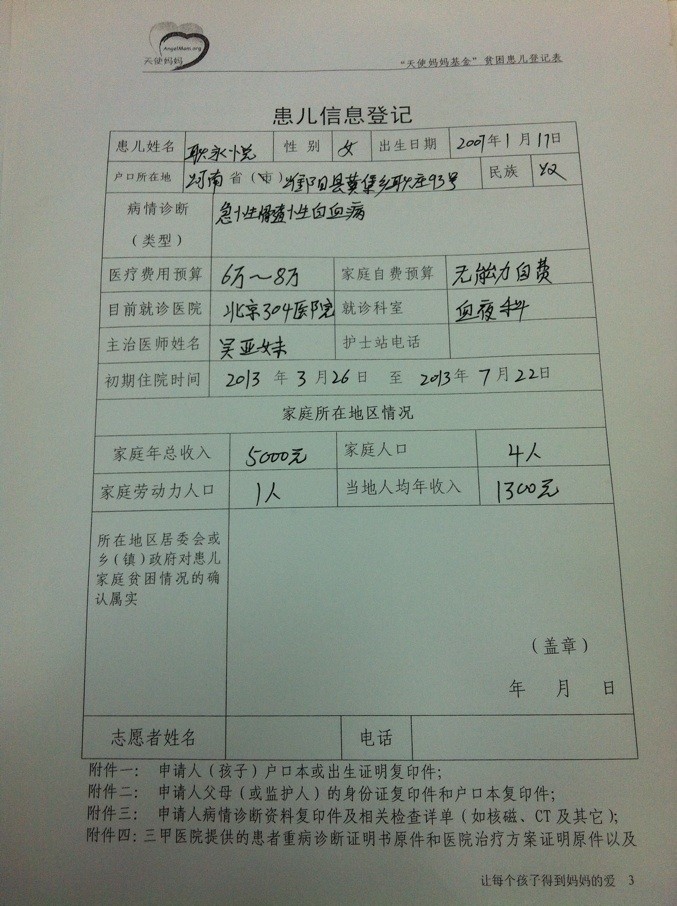 AngelMom.org
天使妈妈
“天使妈妈基金”贫困患儿登记表
患儿信息登记
患儿姓名 耿永悦 性别 女 出生日期 2007年1月17日
户口所在地 河南省(市)濮阳县黄堡乡耿庄93号 民族 汉
病情诊断 急性髓性白血病
(类型)
医疗费用预算 6万～8万 家庭自费预算 无能力自费
目前就诊医院 北京304医院 就诊科室 血夜科
主治医师姓名 吴亚妹 护士站电话
初期住院时间 2013年3月26日 至 2013年7月22日
家庭所在地区情况
家庭年总收入 5000元 家庭人口 4人
家庭劳动力人口 1人 当地人均年收入 1300元
所在地区居委会或
乡(镇)政府对患儿
家庭贫困情况的确
认属实
(盖章)
年 月 日
志愿者姓名 电话
附件一: 申请人(孩子)户口本或出生证明复印件;
附件二: 申请人父母(或监护人)的身份证复印件和户口本复印件;
附件三: 申请人病情诊断资料复印件及相关检查详单(如核磁、CT及其它);
附件四:三甲医院提供的患者重病诊断证明书原件和医院治疗方案证明原件以及
让每个孩子得到妈妈的爱 3